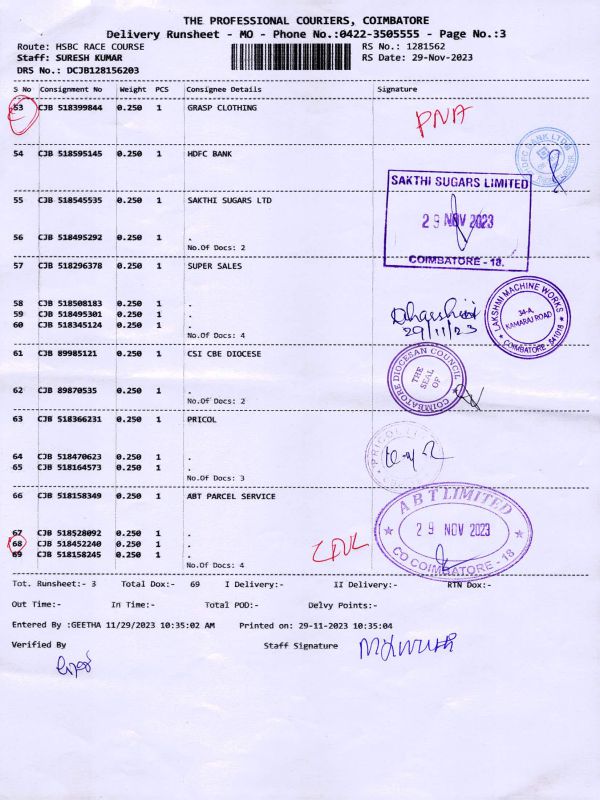 THE PROFESSIONAL COURIERS, COIMBATORE
Delivery Runsheet - MO - Phone No.:0422-3505555 - Page No.:3
Route: HSBC RACE COURSE RS No.: 1281562
Staff: SURESH KUMAR RS Date: 29-Nov-2023
DRS No.: DCJB128156203
S No Consignment No Weight PCS Consignee Details Signature
53 CJB 518399844 0.250 1 GRASP CLOTHING
PNA
54 CJB 518595145 0.250 1 HDFC BANK
HDFC BANK LTD
55 CJB 518545535 0.250 1 SAKTHI SUGARS LTD
SAKTHI SUGARS LIMITED
29 NOV 2023
COIMBATORE - 18.
56 CJB 518495292 0.250 1 .
No.Of Docs: 2
57 CJB 518296378 0.250 1 SUPER SALES
58 CJB 518508183 0.250 1 .
59 CJB 518495301 0.250 1 .
60 CJB 518345124 0.250 1 .
No.Of Docs: 4
29/11/23
LAKSHMI MACHINE WORKS
34-A,
KAMARAJ ROAD
COIMBATORE - 641018
61 CJB 89985121 0.250 1 CSI CBE DIOCESE
62 CJB 89870535 0.250 1 .
No.Of Docs: 2
COIMBATORE DIOCESAN COUNCIL
THE
SEAL
OF
63 CJB 518366231 0.250 1 PRICOL
64 CJB 518470623 0.250 1 .
65 CJB 518164573 0.250 1 .
No.Of Docs: 3
PRICOL LI
66 CJB 518158349 0.250 1 ABT PARCEL SERVICE
67 CJB 518528092 0.250 1 .
68 CJB 518452240 0.250 1 .
69 CJB 518158245 0.250 1 .
No.Of Docs: 4
A B T LIMITED
29 NOV 2023
CO COIMBATORE - 18
Tot. Runsheet:- 3 Total Dox:- 69 I Delivery:- II Delivery:- RTN Dox:-
Out Time:- In Time:- Total POD:- Delvy Points:-
Entered By :GEETHA 11/29/2023 10:35:02 AM Printed on: 29-11-2023 10:35:04
Verified By Staff Signature